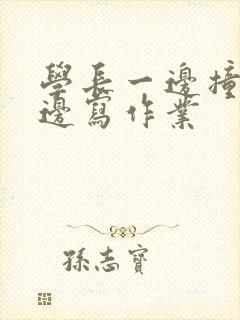 學長一邊撞
邊寫作業
孫志寶